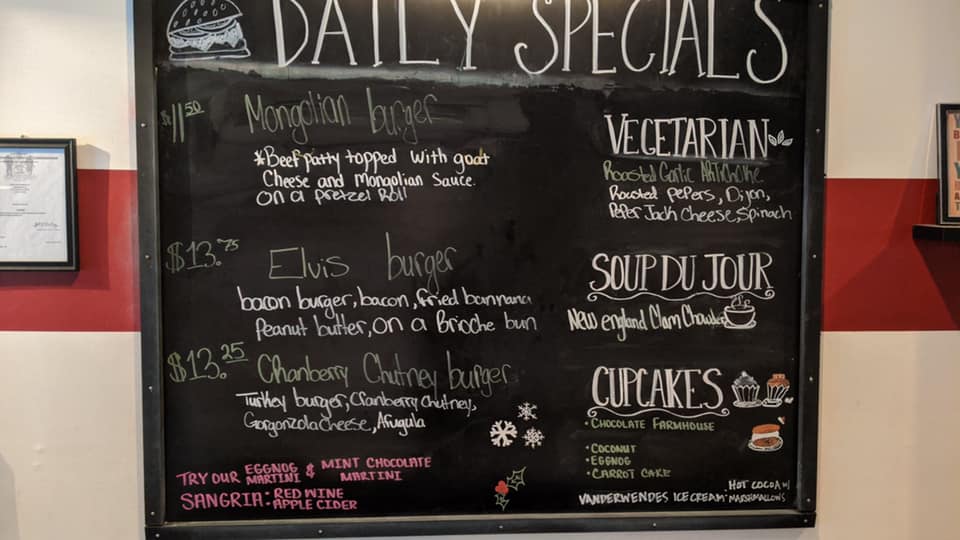 DAILY SPECIALS
$11.50 Mongolian burger
*Beef patty topped with goat
Cheese and Mongolian Sauce.
on a pretzel Roll
$13.75 Elvis burger
bacon burger, bacon, fried bannana
Peanut butter, on a Brioche bun
$13.25 Chanberry Chutney burger
Turkey burger, Cranberry chutney,
Gorgonzola cheese, Arugula
TRY OUR EGGNOG MARTINI & MINT CHOCOLATE MARTINI
SANGRIA: RED WINE
APPLE CIDER
VEGETARIAN
Roasted Garlic ARTichoke
Roasted PePers, Dijon,
PePer Jack Cheese, Spinach
SOUP DU JOUR
New england Clam Chowder
CUPCAKES
• CHOCOLATE FARMHOUSE
• COCONUT
• EGGNOG
• CARROT CAKE
VANDERWENDES ICE CREAM: HOT COCOA w/
MARSHMALLOWS